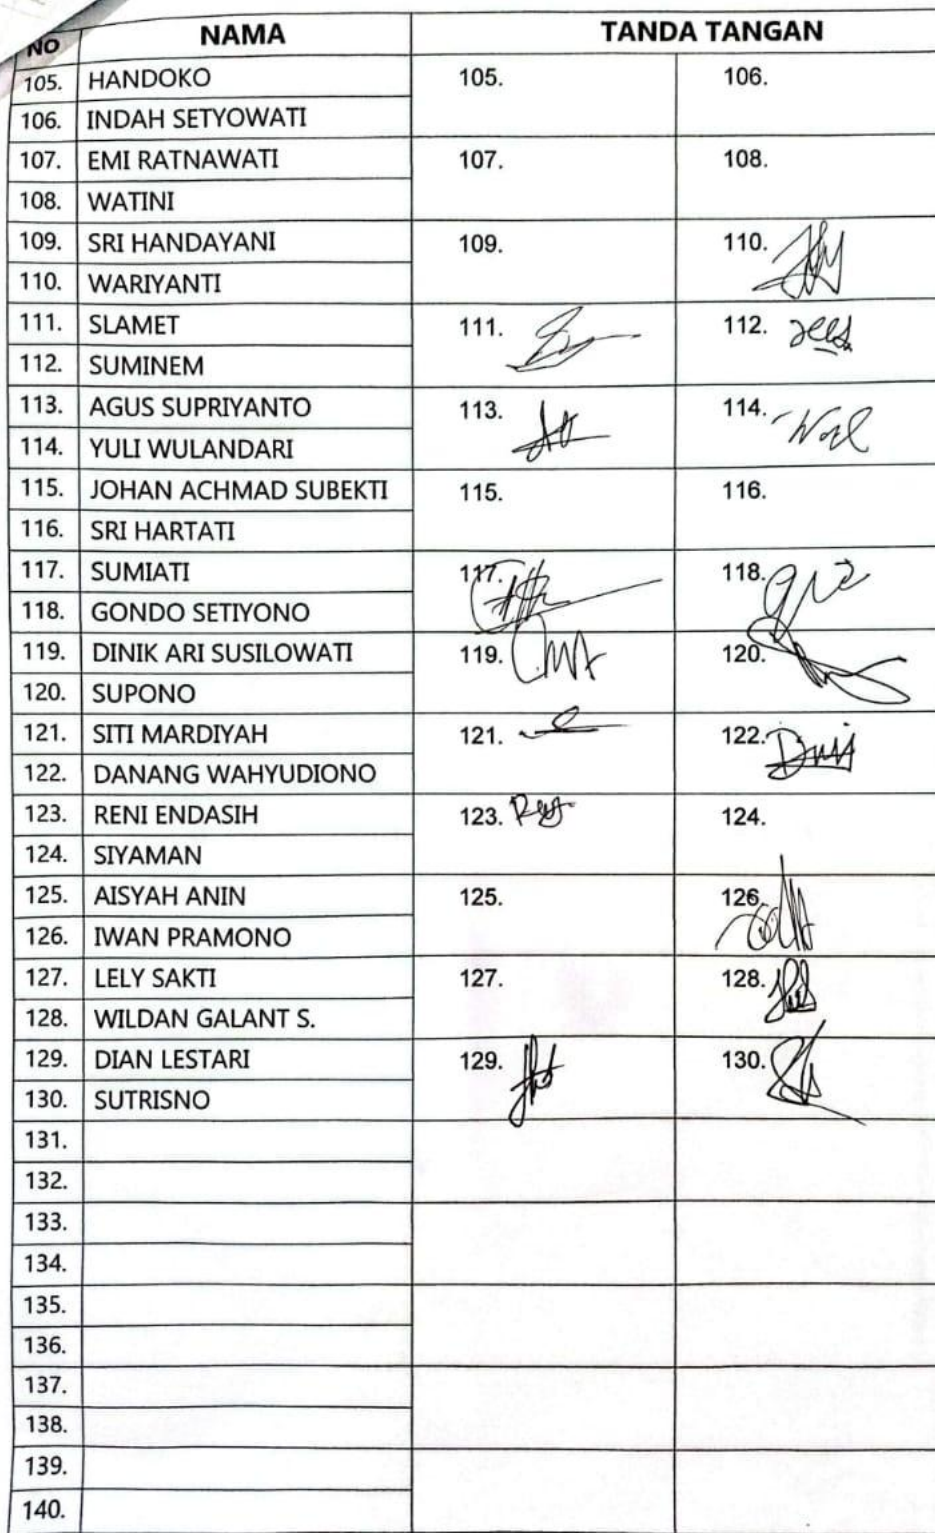 NO NAMA TANDA TANGAN
105. HANDOKO 105. 106.
106. INDAH SETYOWATI
107. EMI RATNAWATI 107. 108.
108. WATINI
109. SRI HANDAYANI 109. 110.
110. WARIYANTI
111. SLAMET 111. 112.
112. SUMINEM
113. AGUS SUPRIYANTO 113. 114.
114. YULI WULANDARI
115. JOHAN ACHMAD SUBEKTI 115. 116.
116. SRI HARTATI
117. SUMIATI 117. 118.
118. GONDO SETIYONO
119. DINIK ARI SUSILOWATI 119. 120.
120. SUPONO
121. SITI MARDIYAH 121. 122.
122. DANANG WAHYUDIONO
123. RENI ENDASIH 123. 124.
124. SIYAMAN
125. AISYAH ANIN 125. 126.
126. IWAN PRAMONO
127. LELY SAKTI 127. 128.
128. WILDAN GALANT S.
129. DIAN LESTARI 129. 130.
130. SUTRISNO
131.
132.
133.
134.
135.
136.
137.
138.
139.
140.